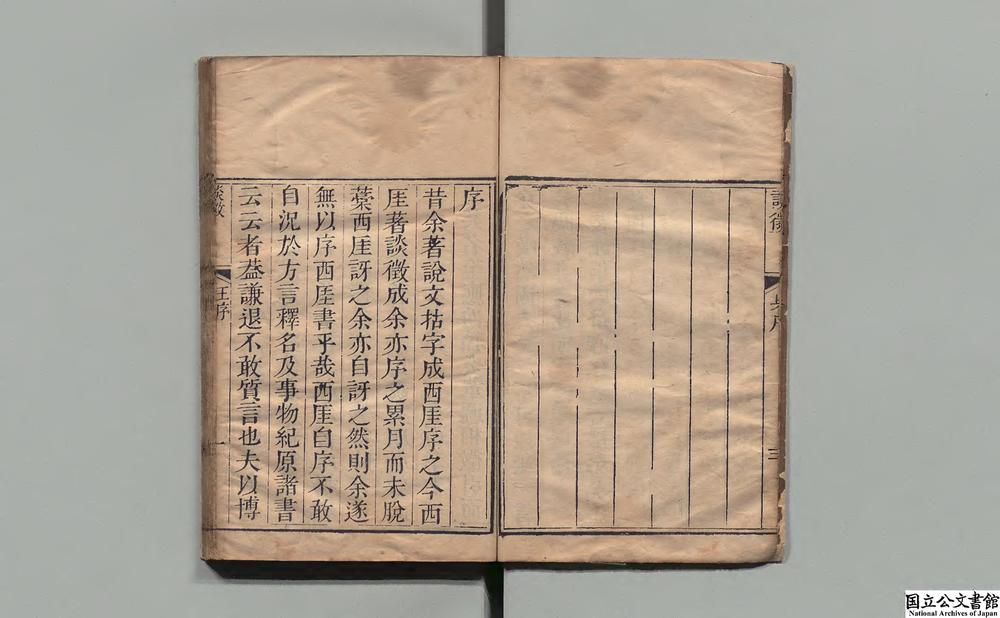 序
昔余著說文拈字成西厓序之今西
厓著談徵成余亦序之累月而未脫
藁西厓訝之余亦自訝之然則余遂
無以序西厓書乎哉西厓自序不敢
自況於方言釋名及事物紀原諸書
云云者葢謙退不敢質言也夫以博
王序
一
三
国立公文書館
National Archives of Japan